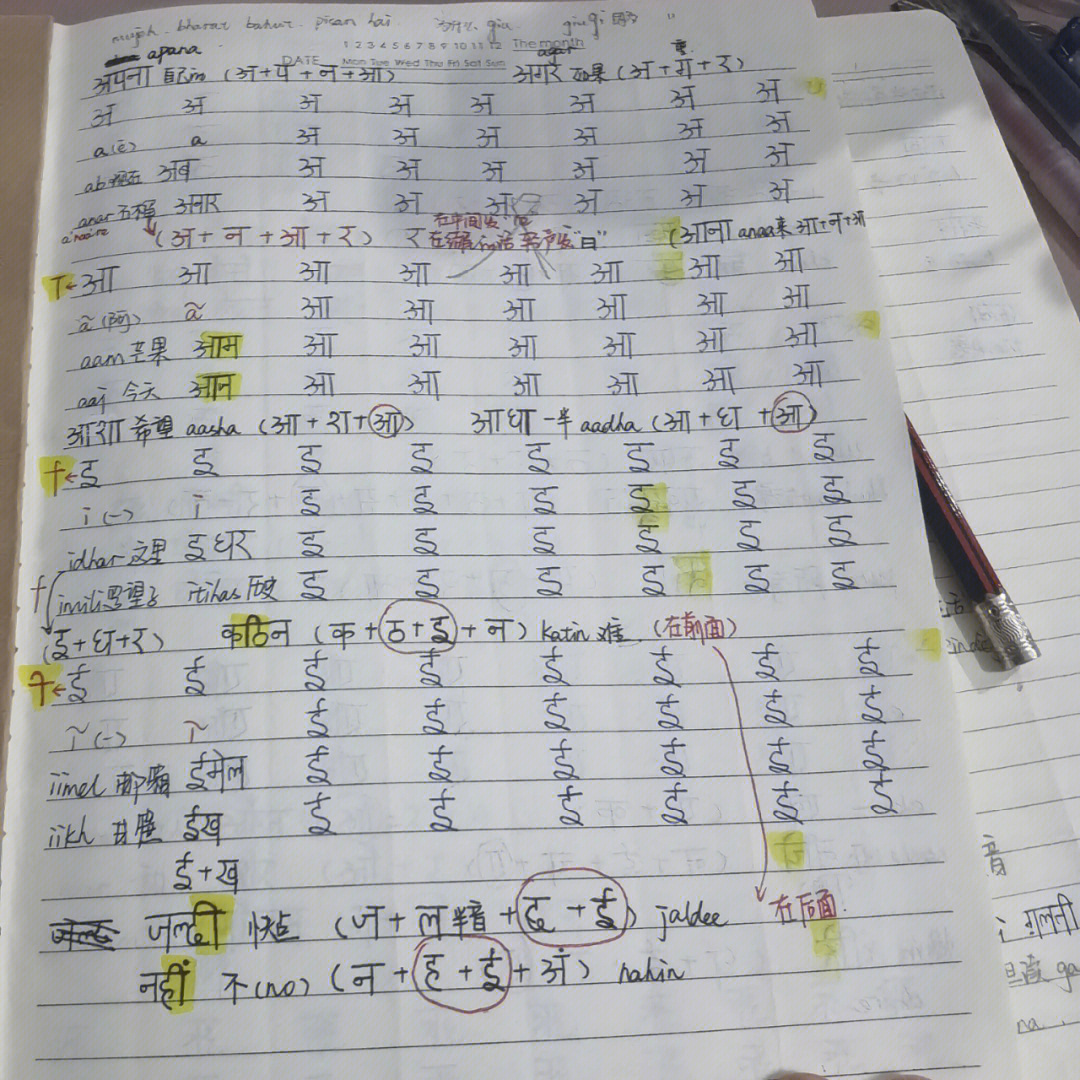 mujh bharat bahut pisan hai
apana
1 2 3 4 5 6 7 8 9 10 11 12 The month
DATE Mon Tue Wed Thu Fri Sat Sun agar
अपना 自己in (अ+प+न+आ) अगर 如果 (अ+ग+र)
अ अ अ अ अ अ अ अ
a a अ अ अ अ अ अ
ab 现在 अब अ अ अ अ अ अ
anar 石榴 अनार अ अ अ अ अ अ
(अ+न+आ+र) र "日" (आना anaa来 आ+न+आ
ा←आ आ आ आ आ आ आ आ
ã (阿) ã आ आ आ आ आ आ
aam 芒果 आम आ आ आ आ आ आ
aaj 今天 आज आ आ आ आ आ आ
आशा 希望 aasha (आ+शा+आ) आधा 一半 aadha (आ+धा+आ)
ि←इ इ इ इ इ इ इ इ
i (一) i इ इ इ इ इ इ
idhar 这里 इधर इ इ इ इ इ इ
imili 罗望子 itihas 历史 इ इ इ इ इ इ
(इ+ध+र) कठिन (क+ठ+इ+न) katin 难 (在前面)
ी←ई ई ई ई ई ई ई ई
ĩ (一) ĩ ई ई ई ई ई ई
iimel 邮箱 ईमेल ई ई ई ई ई ई
iikh 甘蔗 ईख ई ई ई ई ई ई
ई+ख
जल्दी 快点 (ज+ल半音+द+ई) jaldee 在后面
नहीं 不(no) (न+ह+ई+अं) nahin
音
ga
na